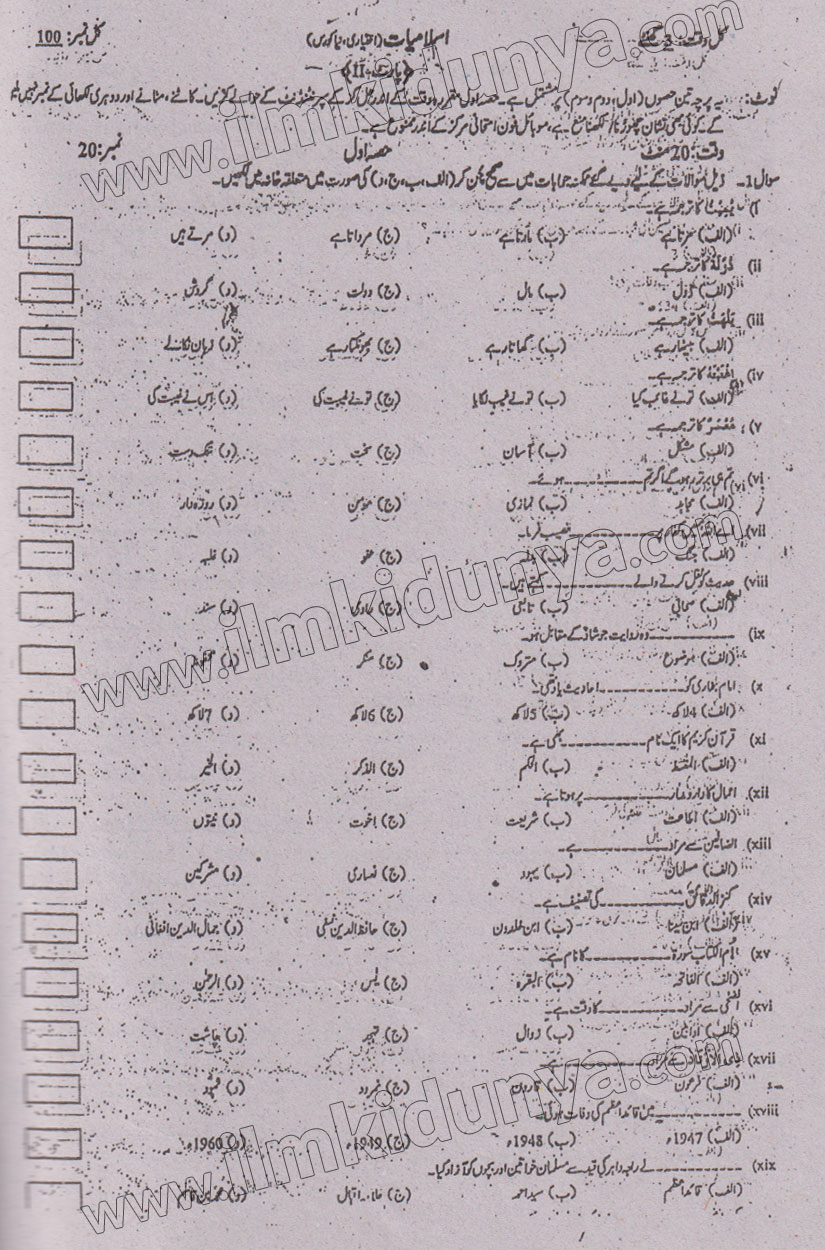 کل نمبر: 100
اسلامیات (اختیاری، نیا کورس)
کل وقت: 3 گھنٹے
﴿پارٹ-II﴾
نوٹ: یہ پرچہ تین حصوں (اول، دوم و سوم) پر مشتمل ہے۔ حصہ اول مقررہ وقت کے اندر حل کر کے سپرنٹنڈنٹ کے حوالے کریں۔ کاٹنے، مٹانے اور دوہری لکھائی کے نمبر نہیں
گے۔ کوئی بھی نشان چھوڑنا/لکھنا منع ہے، موبائل فون امتحانی مرکز کے اندر ممنوع ہے۔
وقت: 20 منٹ حصہ اول نمبر: 20
سوال 1۔ ذیل سوالات کے لیے دیے گئے ممکنہ جوابات میں سے صحیح چن کر (الف، ب، ج، د) کی صورت میں متعلقہ خانہ میں لکھیں۔
کا ترجمہ ہے۔
(الف) (ب) مارتا ہے (ج) مرداتا ہے (د) مرتے ہیں
(ii دُوْلَةً کا ترجمہ ہے۔
(الف) (ب) مال (ج) دولت (د) گردش
(iii یلھث کا ترجمہ ہے۔
(الف) (ب) کھاتا رہے (ج) بھونکتا رہے (د) زبان نکالے
(iv کا ترجمہ ہے۔
(الف) تو نے غائب کیا (ب) تو نے عیب لگایا (ج) تو نے غیبت کی (د) اس نے غیبت کی
(v کا ترجمہ ہے۔
(الف) مشکل (ب) آسان (ج) سخت (د) تنگ دست
(vi تم ہی برتر رہو گے اگر تم ــــــــــــ ہوئے۔
(الف) مجاہد (ب) نمازی (ج) مومن (د) روزہ دار
(vii ــــــــــــ نصیب فرما۔
(الف) جنگ (ب) (ج) عفو (د) غلبہ
(viii حدیث کو نقل کرنے والے ــــــــــــ کہتے ہیں۔
(الف) صحابی (ب) تابعی (ج) راوی (د) سند
(ix ــــــــــــ وہ روایت جو شاذ کے مقابل ہو۔
(الف) موضوع (ب) متروک (ج) منکر (د)
(x امام بخاری کو ــــــــــــ احادیث یاد تھی۔
(الف) 4 لاکھ (ب) 5 لاکھ (ج) 6 لاکھ (د) 7 لاکھ
(xi قرآن کریم کا ایک نام ــــــــــــ بھی ہے۔
(الف) (ب) الحکم (ج) الذکر (د) الخیر
(xii اعمال کا دارومدار ــــــــــــ پر ہوتا ہے۔
(الف) اطاعت (ب) شریعت (ج) اخوت (د) نیتوں
(xiii الضالین سے مراد ــــــــــــ ہے۔
(الف) مسلمان (ب) یہود (ج) نصاریٰ (د) مشرکین
(xiv کنز الدقائق ــــــــــــ کی تصنیف ہے۔
(الف) ابن سینا (ب) ابن خلدون (ج) حافظ الدین نسفی (د) جمال الدین افغانی
(xv اُم الکتاب سورۃ ــــــــــــ کا نام ہے۔
(الف) الفاتحہ (ب) البقرہ (ج) یٰس (د) الرحمٰن
(xvi الضحیٰ سے مراد ــــــــــــ کا وقت ہے۔
(الف) اوابین (ب) زوال (ج) تہجد (د) چاشت
(xvii ذی الاوتاد سے مراد ــــــــــــ ہے۔
(الف) فرعون (ب) قارون (ج) نمرود (د)
(xviii ــــــــــــ میں قائد اعظم کی وفات ہوئی۔
(الف) 1947ء (ب) 1948ء (ج) 1949ء (د) 1960ء
(xix ــــــــــــ نے راجہ داہر کی قید سے مسلمان خواتین اور بچوں کو آزاد کیا۔
(الف) قائد اعظم (ب) سید احمد (ج) علامہ اقبال (د) محمد بن قاسم
www.ilmkidunya.com
www.ilmkidunya.com
www.ilmkidunya.com
www.ilmkidunya.com